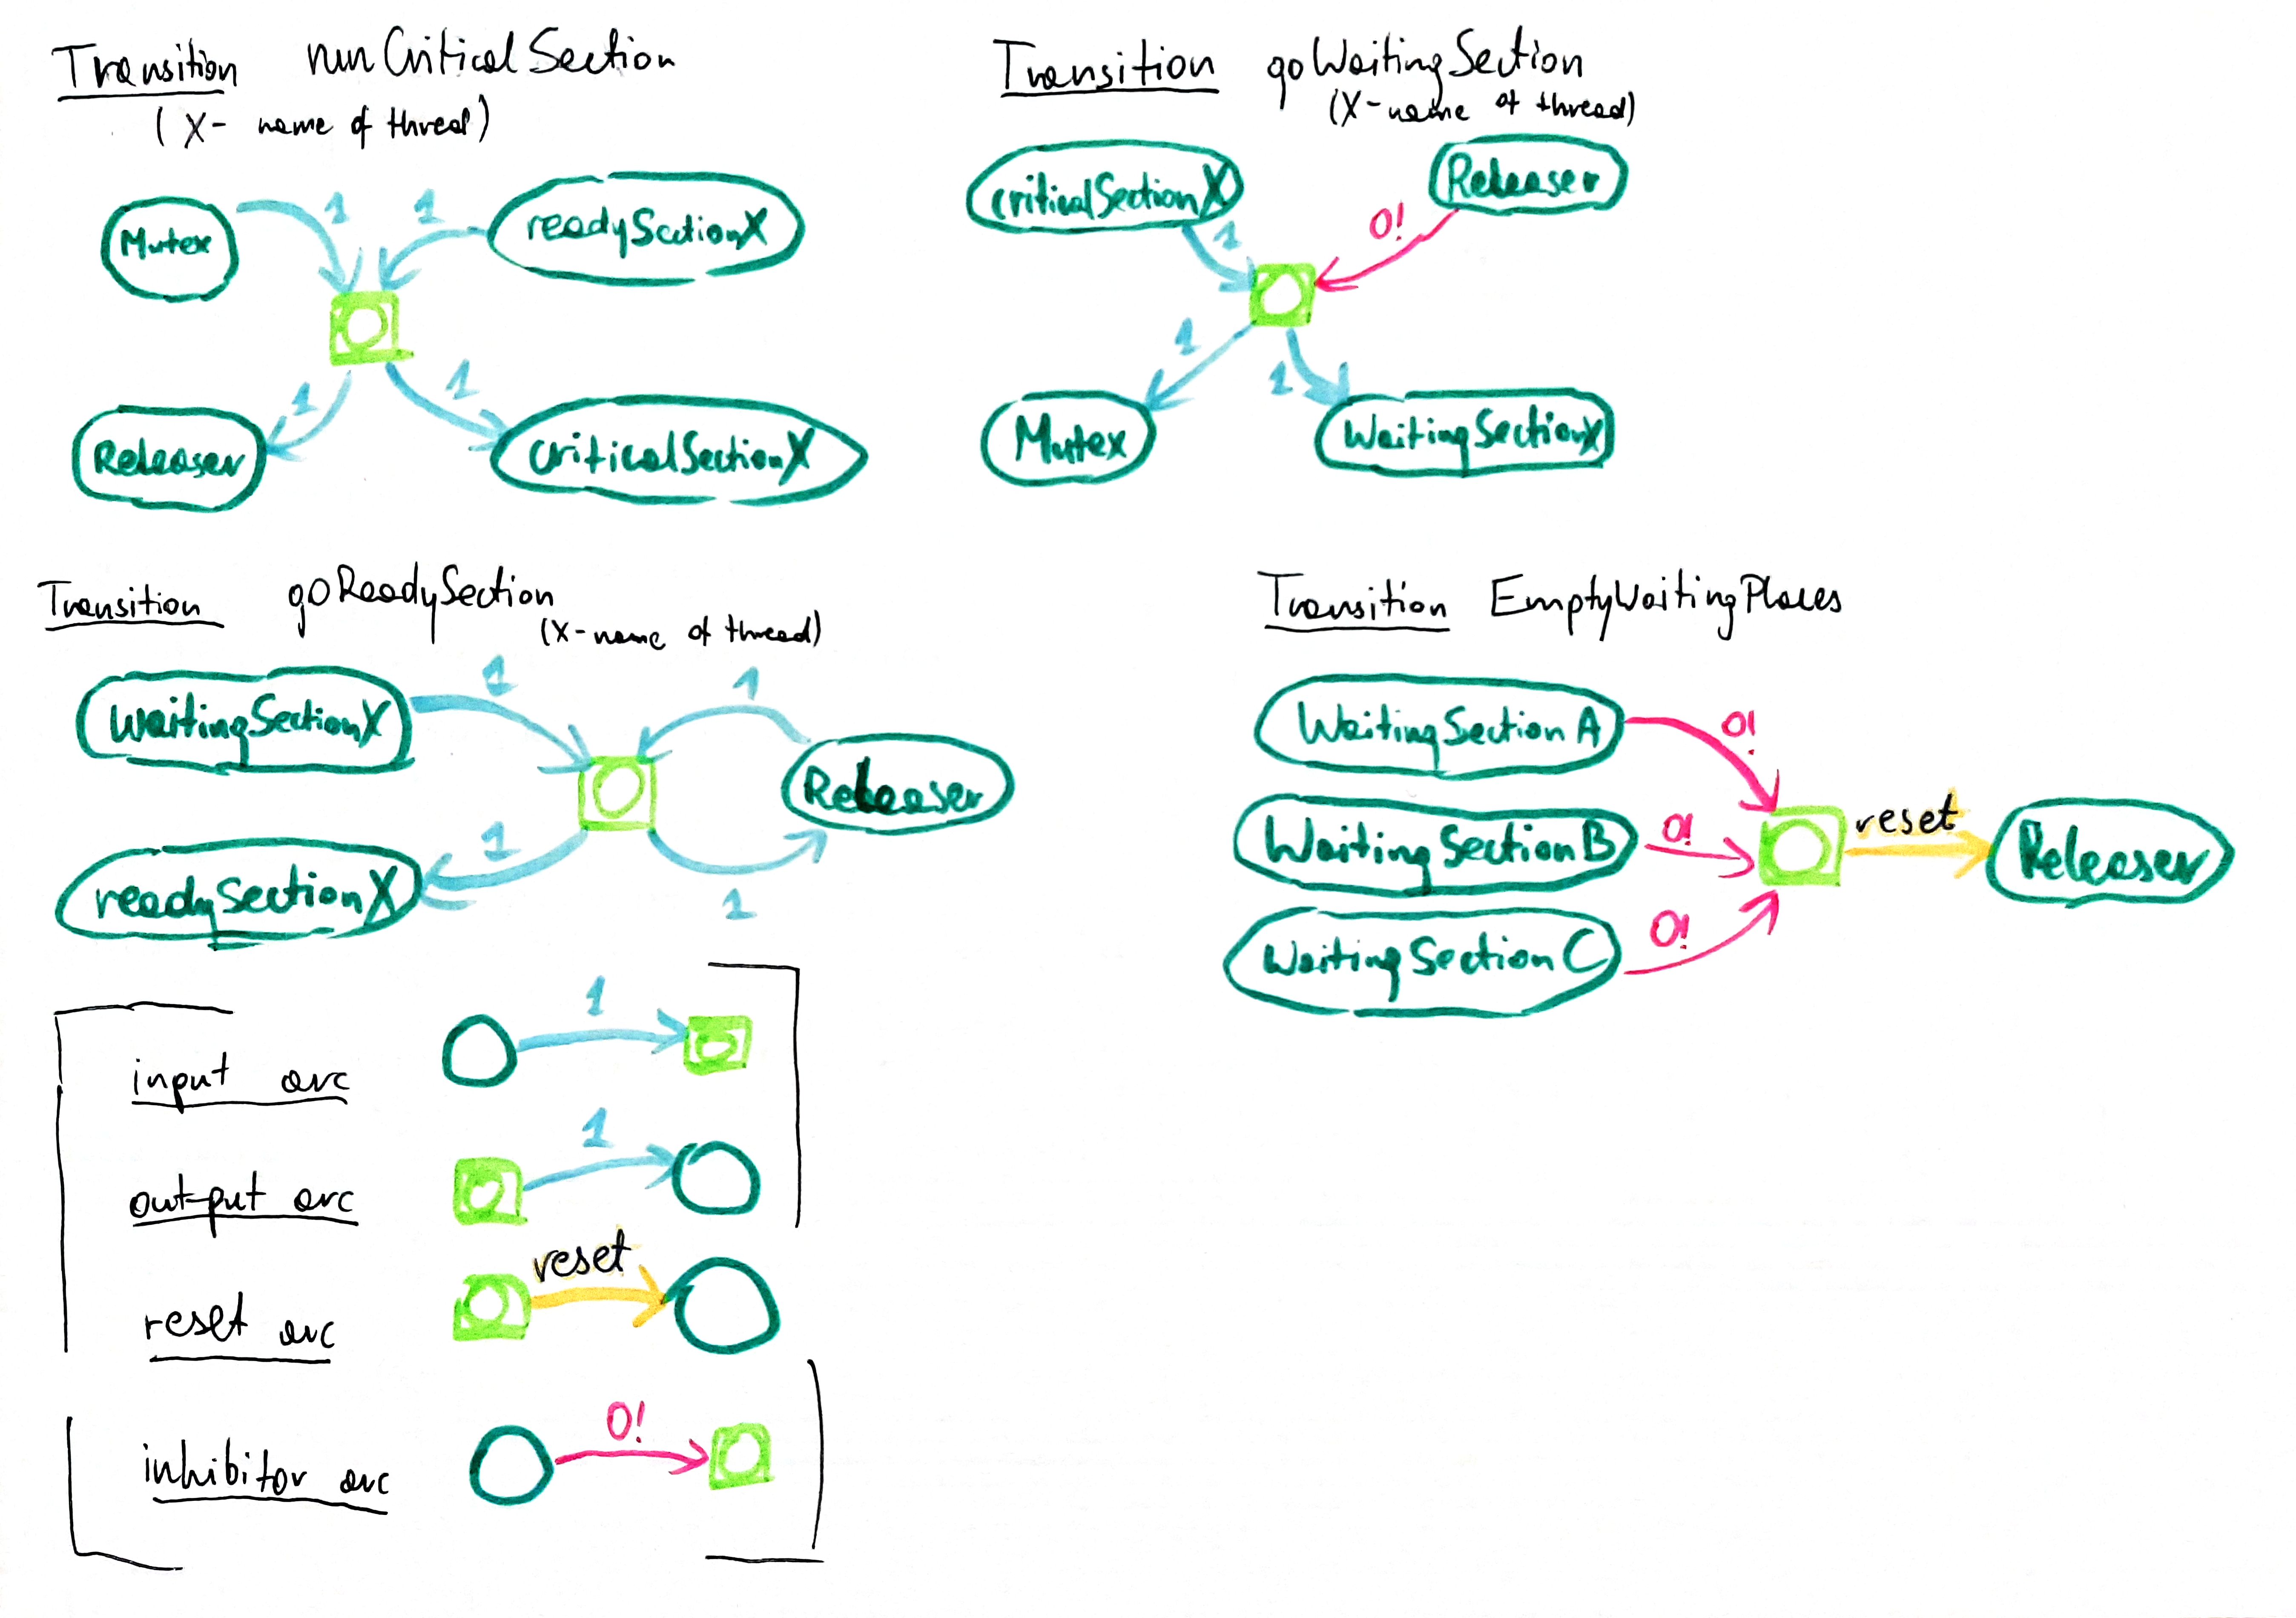 Transition runCriticalSection
(X- name of thread)
Mutex
1
1
readySectionX
Releaser
1
1
criticalSectionX
Transition goWaitingSection
(X-name of thread)
criticalSectionX
Releaser
1
0!
1
1
Mutex
WaitingSectionX
Transition goReadySection
(X-name of thread)
WaitingSectionX
1
1
Releaser
readySectionX
1
1
Transition EmptyWaitingPlaces
WaitingSection A
0!
WaitingSectionB
0!
reset
Releaser
WaitingSection C
0!
input arc
1
output arc
1
reset arc
reset
inhibitor arc
0!